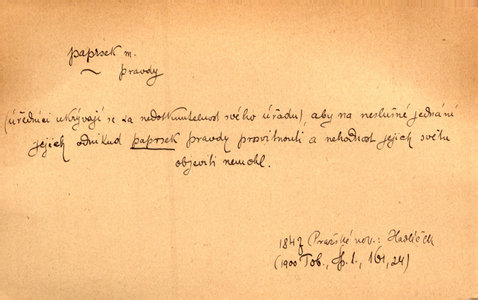 paprsek m.
~ pravdy
(úředníci ukrývají se za nedotknutelnost svého úřadu), aby na neslušné jednání
jejich odnikud paprsek pravdy prosvitnouti a nehodnost jejich světu
objeviti nemohl.
1847 Pražské nov.: Havlíček
(1900 Tob., 1, 161, 24)